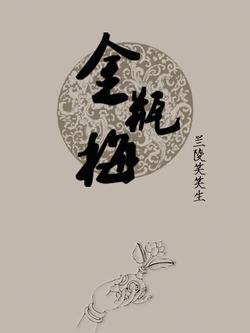 金瓶梅
兰陵笑笑生